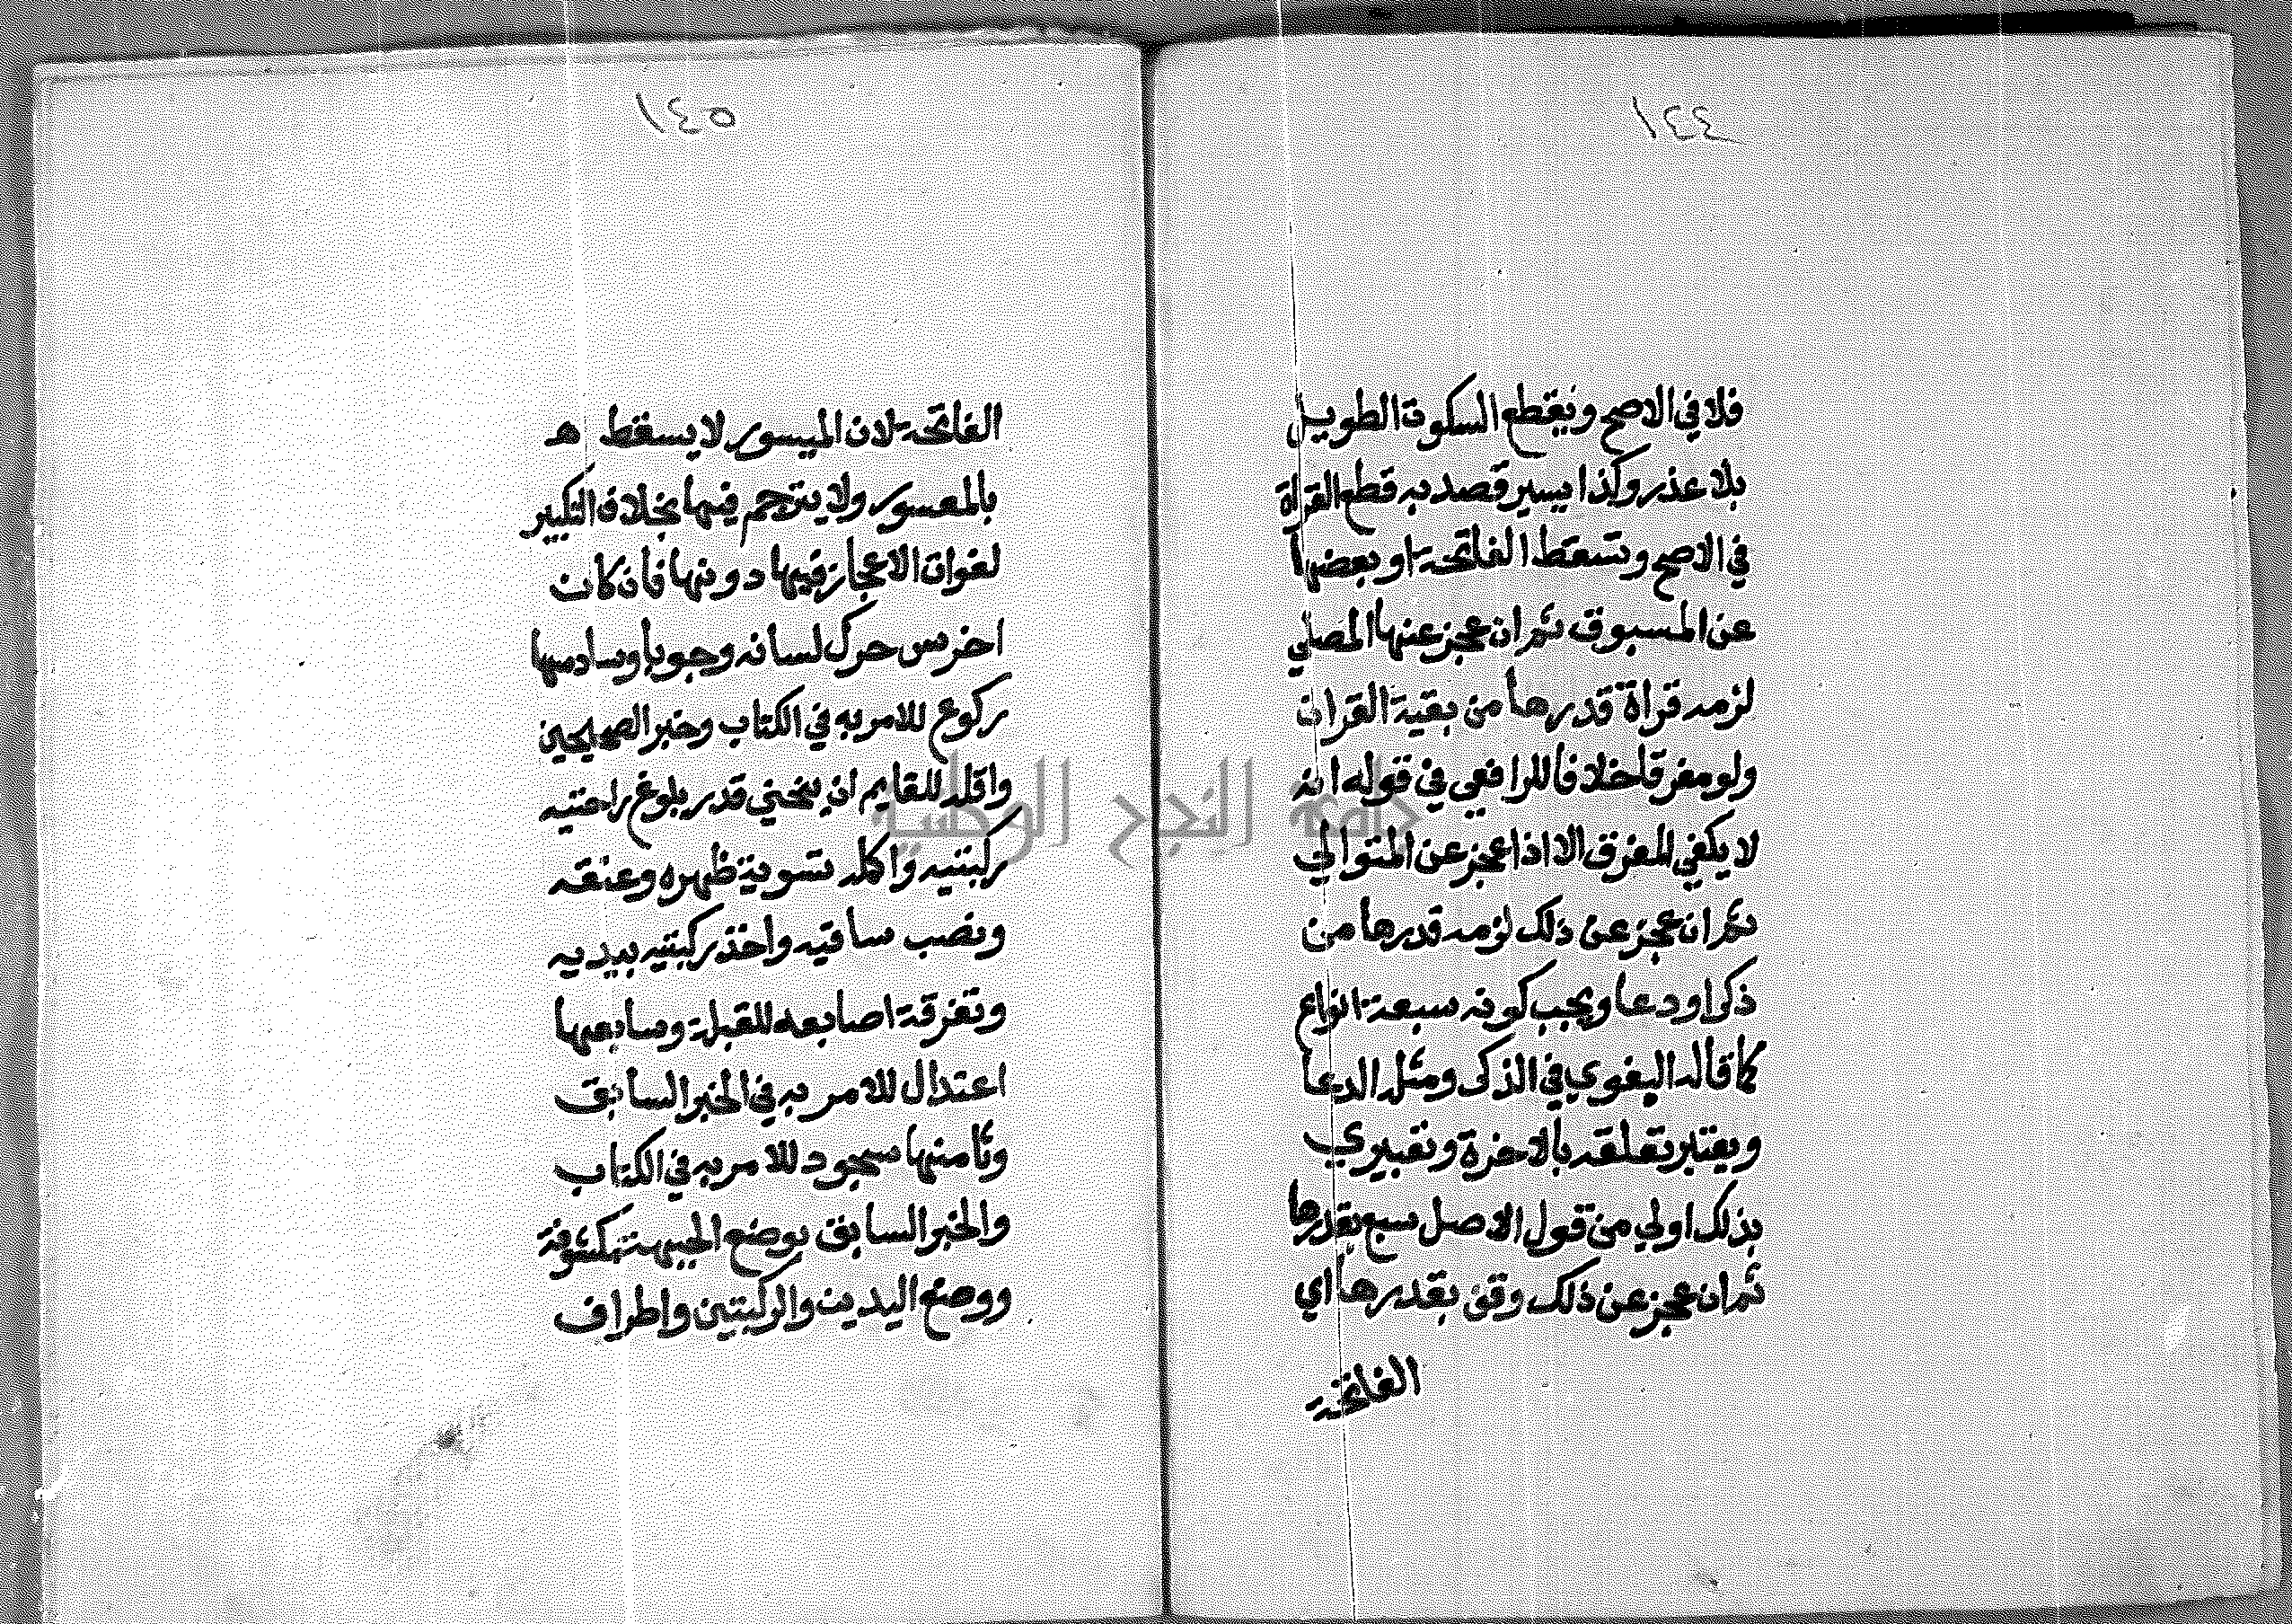 ١٤٤
فلا في الاصح ويقطع السكوت الطويل
بلا عذر وكذا يسير قصد به قطع القراة
في الاصح وتسقط الفاتحة او بعضها
عن المسبوق ثم ان عجز عنها المصلي
لزمه قراة قدرها من بقية القران
ولو مفرقا خلافا للرافعي في قوله انه
لا يكفي المفرق الا اذا عجز عن المتوالي
ثم ان عجز عن ذلك لزمه قدرها من
ذكر او دعا ويجب كونه سبعة انواع
كما قاله البغوي في الذكر ومثله الدعا
ويعتبر تعلقه بالاخرة وتعبيري
بذلك اولي من قول الاصل سبع بقدرها
ثم ان عجز عن ذلك وقف بقدرها اي
الفاتحة
١٤٥
الفاتحة لان الميسور لا يسقط ه
بالمعسور ولا يترجم فيها بخلاف التكبير
لفوات الاعجاز فيها دونها فان كان
اخرس حرك لسانه وجوبا وسادسها
ركوع للامر به في الكتاب وخبر الصحيحين
واقله للقايم ان ينحني قدر بلوغ راحتيه
ركبتيه واكمله تسوية ظهره وعنقه
ونصب ساقيه واخذ ركبتيه بيديه
وتفرقة اصابعه للقبلة وسابعها
اعتدال للامر به في الخبر السابق
وثامنها سجود للامر به في الكتاب
والخبر السابق بوضع الجبهة مكشوفة
ووضع اليدين والركبتين واطراف
جامعة النجاح الوطنية